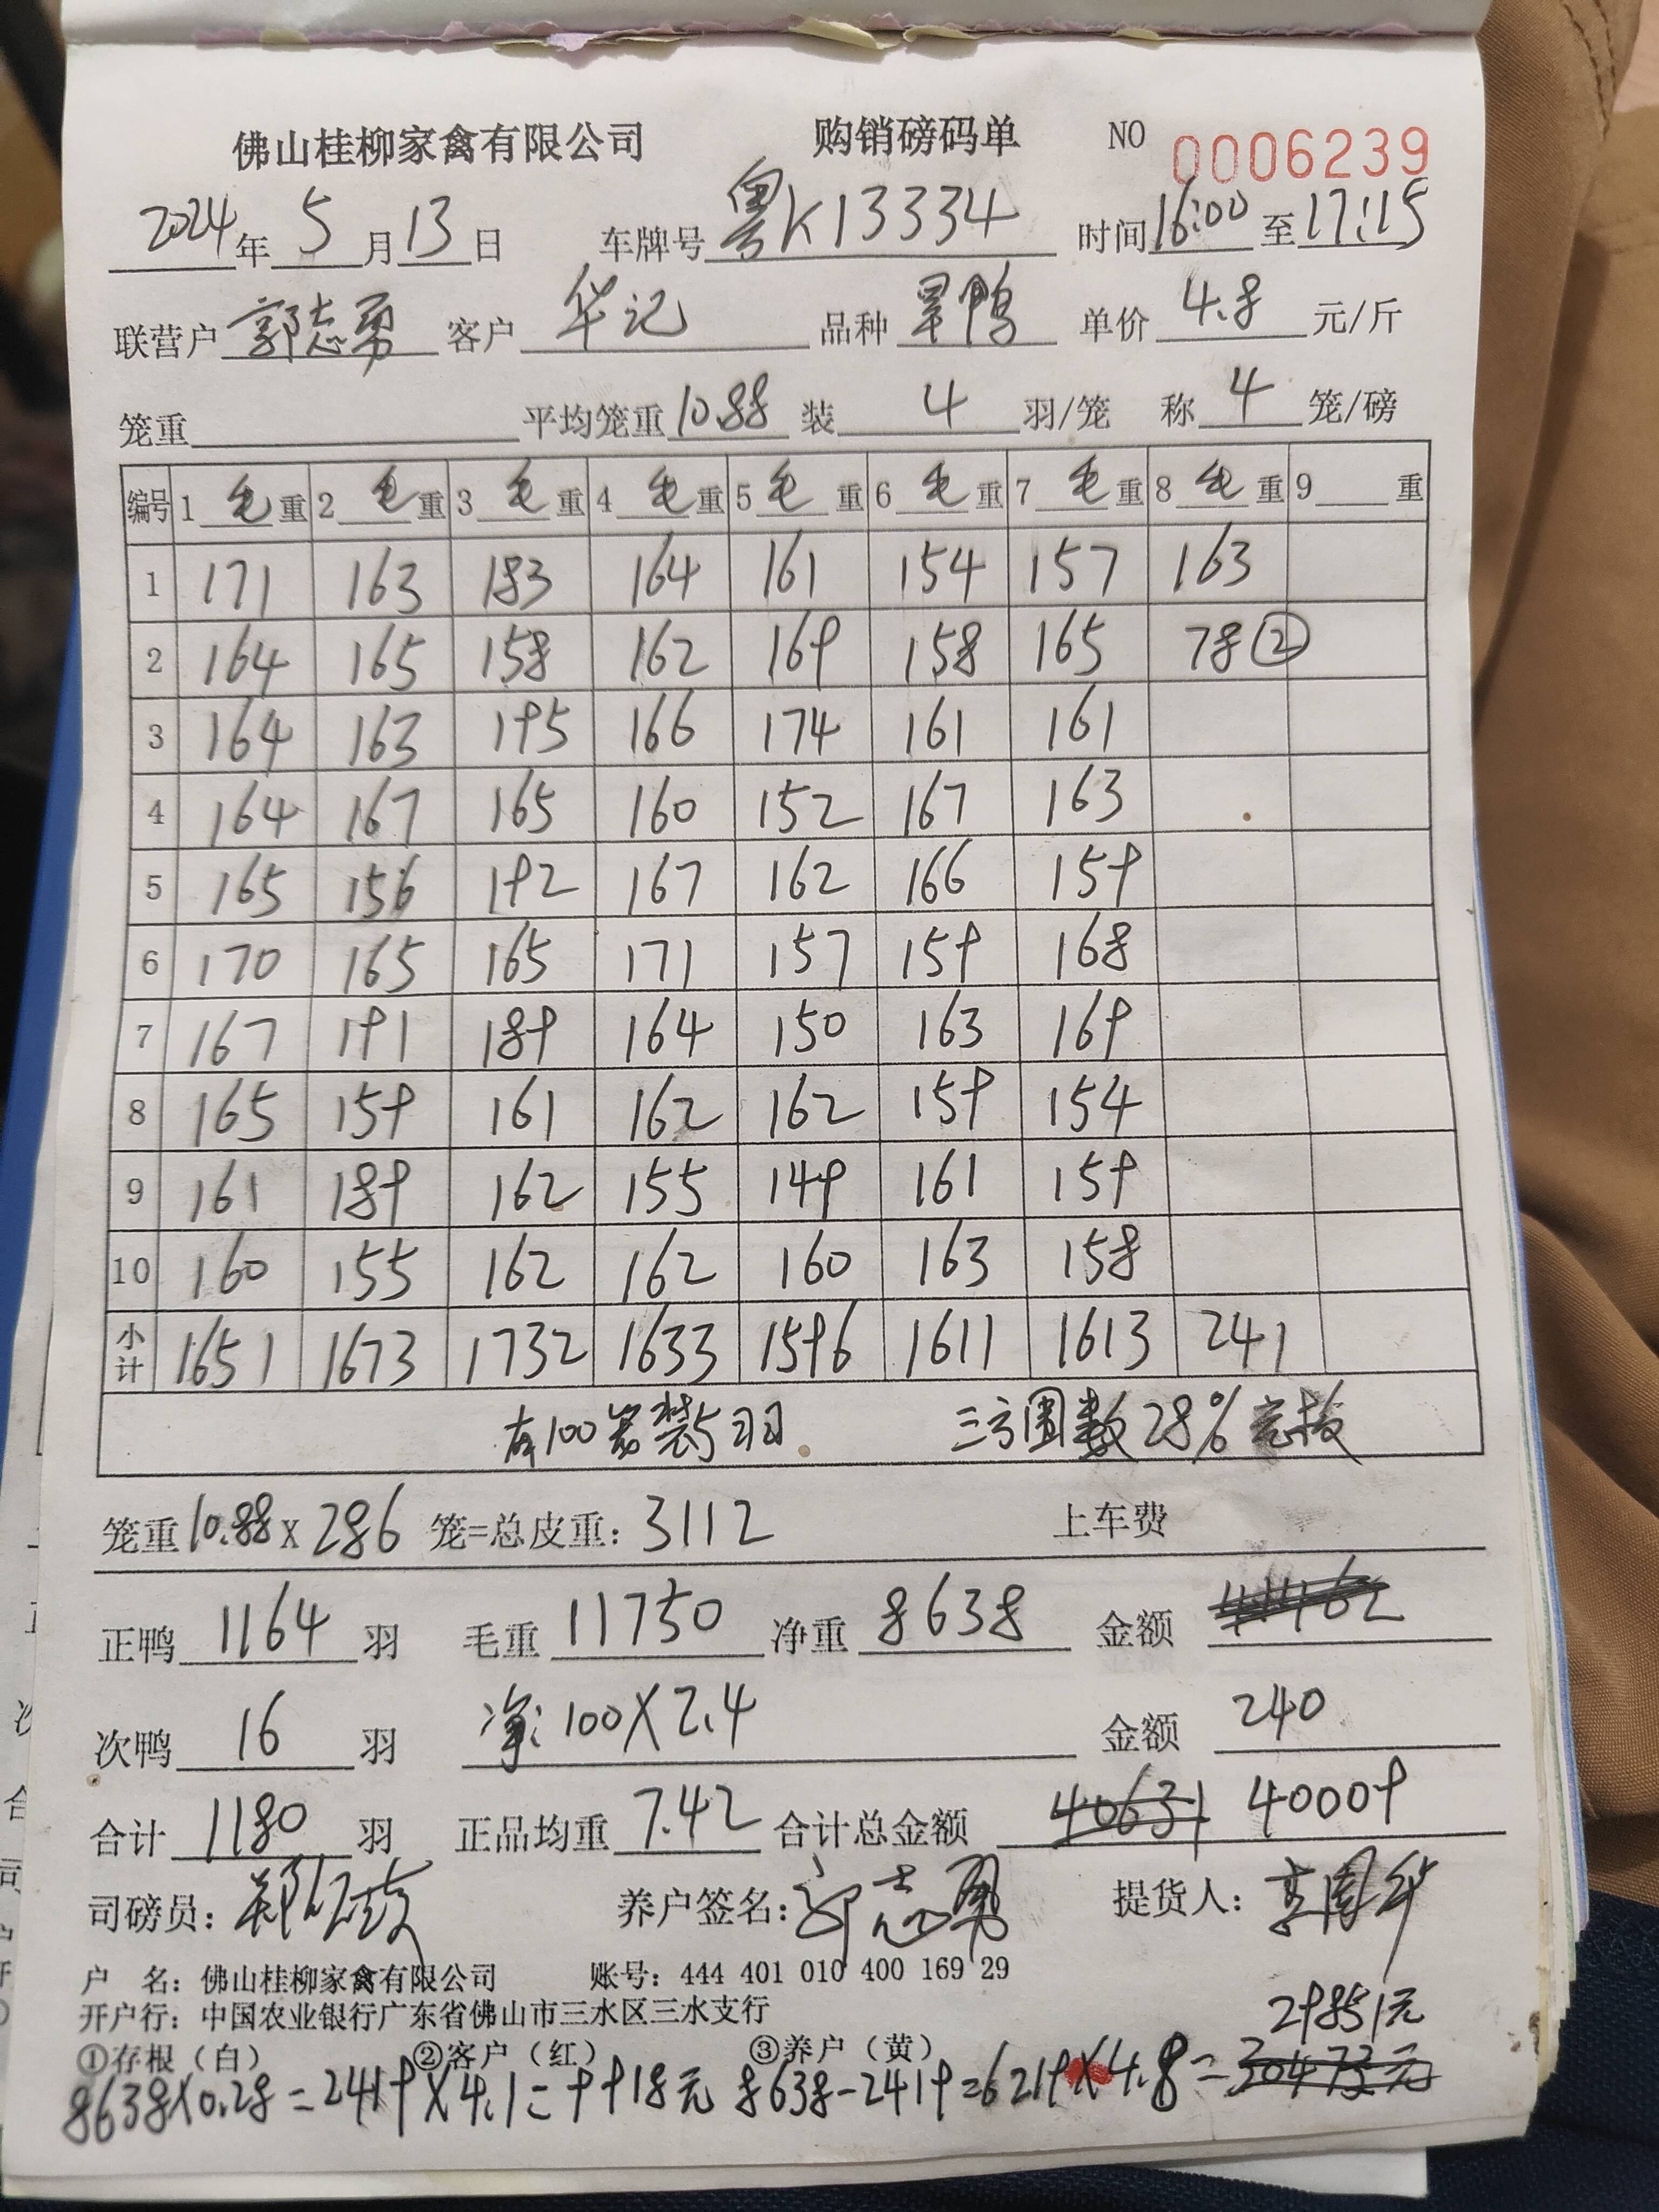 佛山桂柳家禽有限公司 购销磅码单 NO 0006239
2024年5月13日 车牌号粤K13334 时间16:00至17:15
联营户 郭志勇 客户 华记 品种 旱鸭 单价 4.8 元/斤
笼重 平均笼重10.88 装 4 羽/笼 称 4 笼/磅
编号 1毛重 2毛重 3毛重 4毛重 5毛重 6毛重 7毛重 8毛重 9重
1 171 163 183 164 161 154 157 163
2 164 165 158 162 169 158 165 78②
3 164 163 195 166 174 161 161
4 164 167 165 160 152 167 163
5 165 156 192 167 162 166 159
6 170 165 165 171 157 159 168
7 167 191 189 164 150 163 169
8 165 159 161 162 162 159 154
9 161 189 162 155 149 161 159
10 160 155 162 162 160 163 158
小计 1651 1673 1732 1633 1596 1611 1613 241
有100 装5羽 三方围数28%
笼重10.88X286 笼=总皮重：3112 上车费
正鸭 1164 羽 毛重 11750 净重 8638 金额 41462
次鸭 16 羽 净:100X2.4 金额 240
合计 1180 羽 正品均重 7.42 合计总金额 40631 40009
司磅员： 养户签名：郭志勇 提货人：李国华
户 名：佛山桂柳家禽有限公司 账号：444 401 010 400 169 29
开户行：中国农业银行广东省佛山市三水区三水支行
29851元
①存根（白） ②客户（红） ③养户（黄）
8638X0.28=2419X4.1=9918元 8638-2419=6219X4.8=30473元